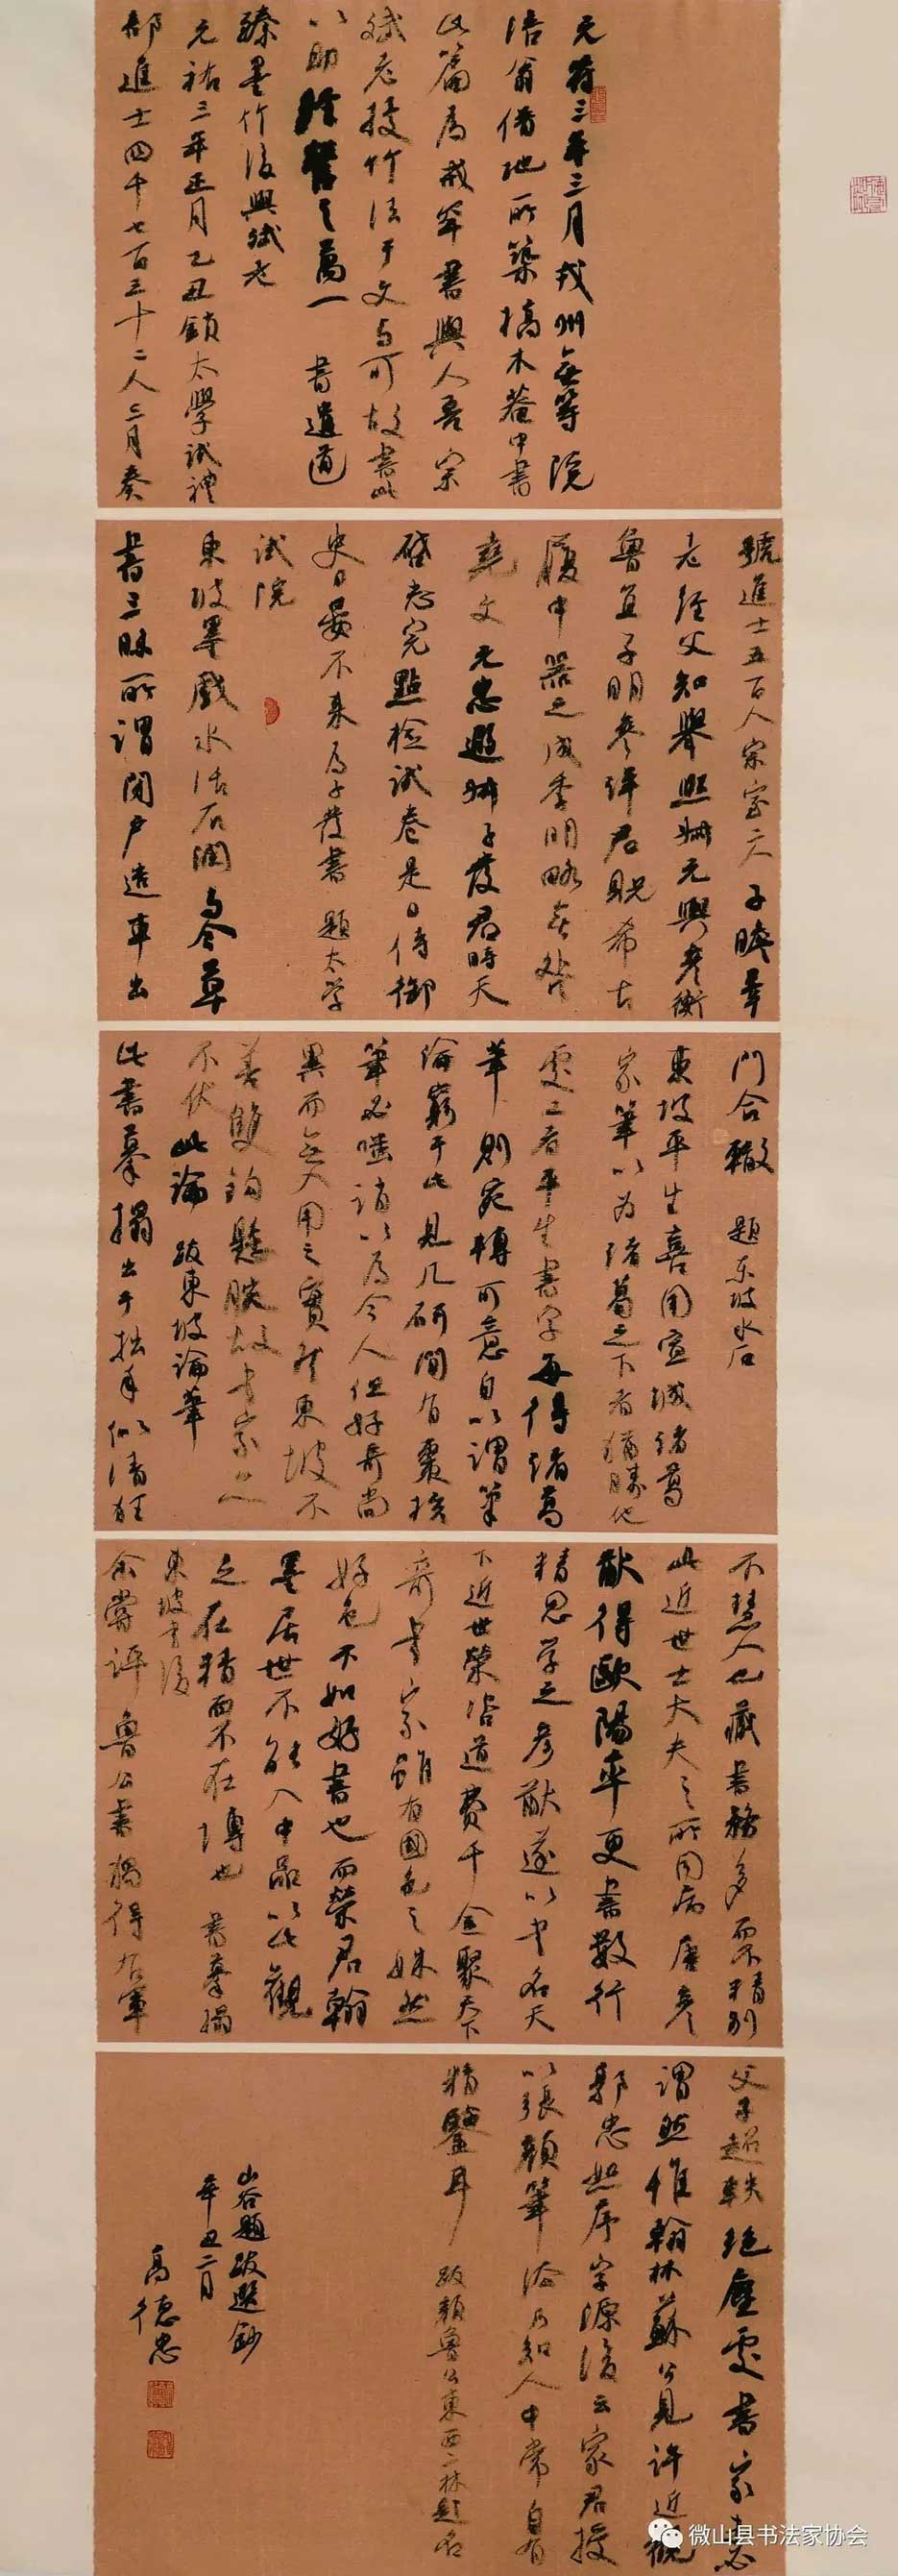 元符三年三月戎州無等院
涪翁借地所築槁木菴中書
此篇為戒筆書與人吾宗
斌老授竹法于文與可故書此
以助經營之萬一 書遺道
臻墨竹後與斌老
元祐三年正月乙丑鎖太學試禮
部進士四千七百三十二人三月奏
號進士五百人宗室二人子瞻莘
老經父知舉熙叔元輿彥衡
魯直子明參詳君貺希古
履中器之成季明略無咎
堯文元忠遐叔子發君時天
啓志完點檢試卷是日侍御
史日晏不來為子發書 題太學
試院
東坡墨戲水活石潤與今草
書三昧所謂閉戶造車出
門合轍 題東坡水石
東坡平生喜用宣城諸葛
家筆以為諸葛之下者猶勝他
處工者平生書字每得諸葛
筆則宛轉可意自以謂筆
論窮于此見几研間有棗核
筆必嗤誚以為今人但好奇尚
異而無入用之實然東坡不
善雙鉤懸腕故書家亦
不伏此論 跋東坡論筆
此書摹搨出于拙手似清狂
不慧人也藏書務多而不精別
此近世士大夫之所同病唐彥
猷得歐陽率更書數行
精思學之彥猷遂以書名天
下近世榮咨道費千金聚天下
奇書家雖有國色之姝然
好色不如好書也而榮君翰
墨居世不能入中品以此觀
之在精而不在博也 書摹搨
東坡書後
余嘗評魯公書獨得右軍
父子超軼絕塵處書家未必
謂然惟翰林蘇公見許近觀
郭忠恕序字源後云家君授
以張顏筆法乃知人中常自有
精鑒耳 跋顏魯公東西二林題名
山谷題跋選鈔
辛丑二月
高德忠
微山县书法家协会